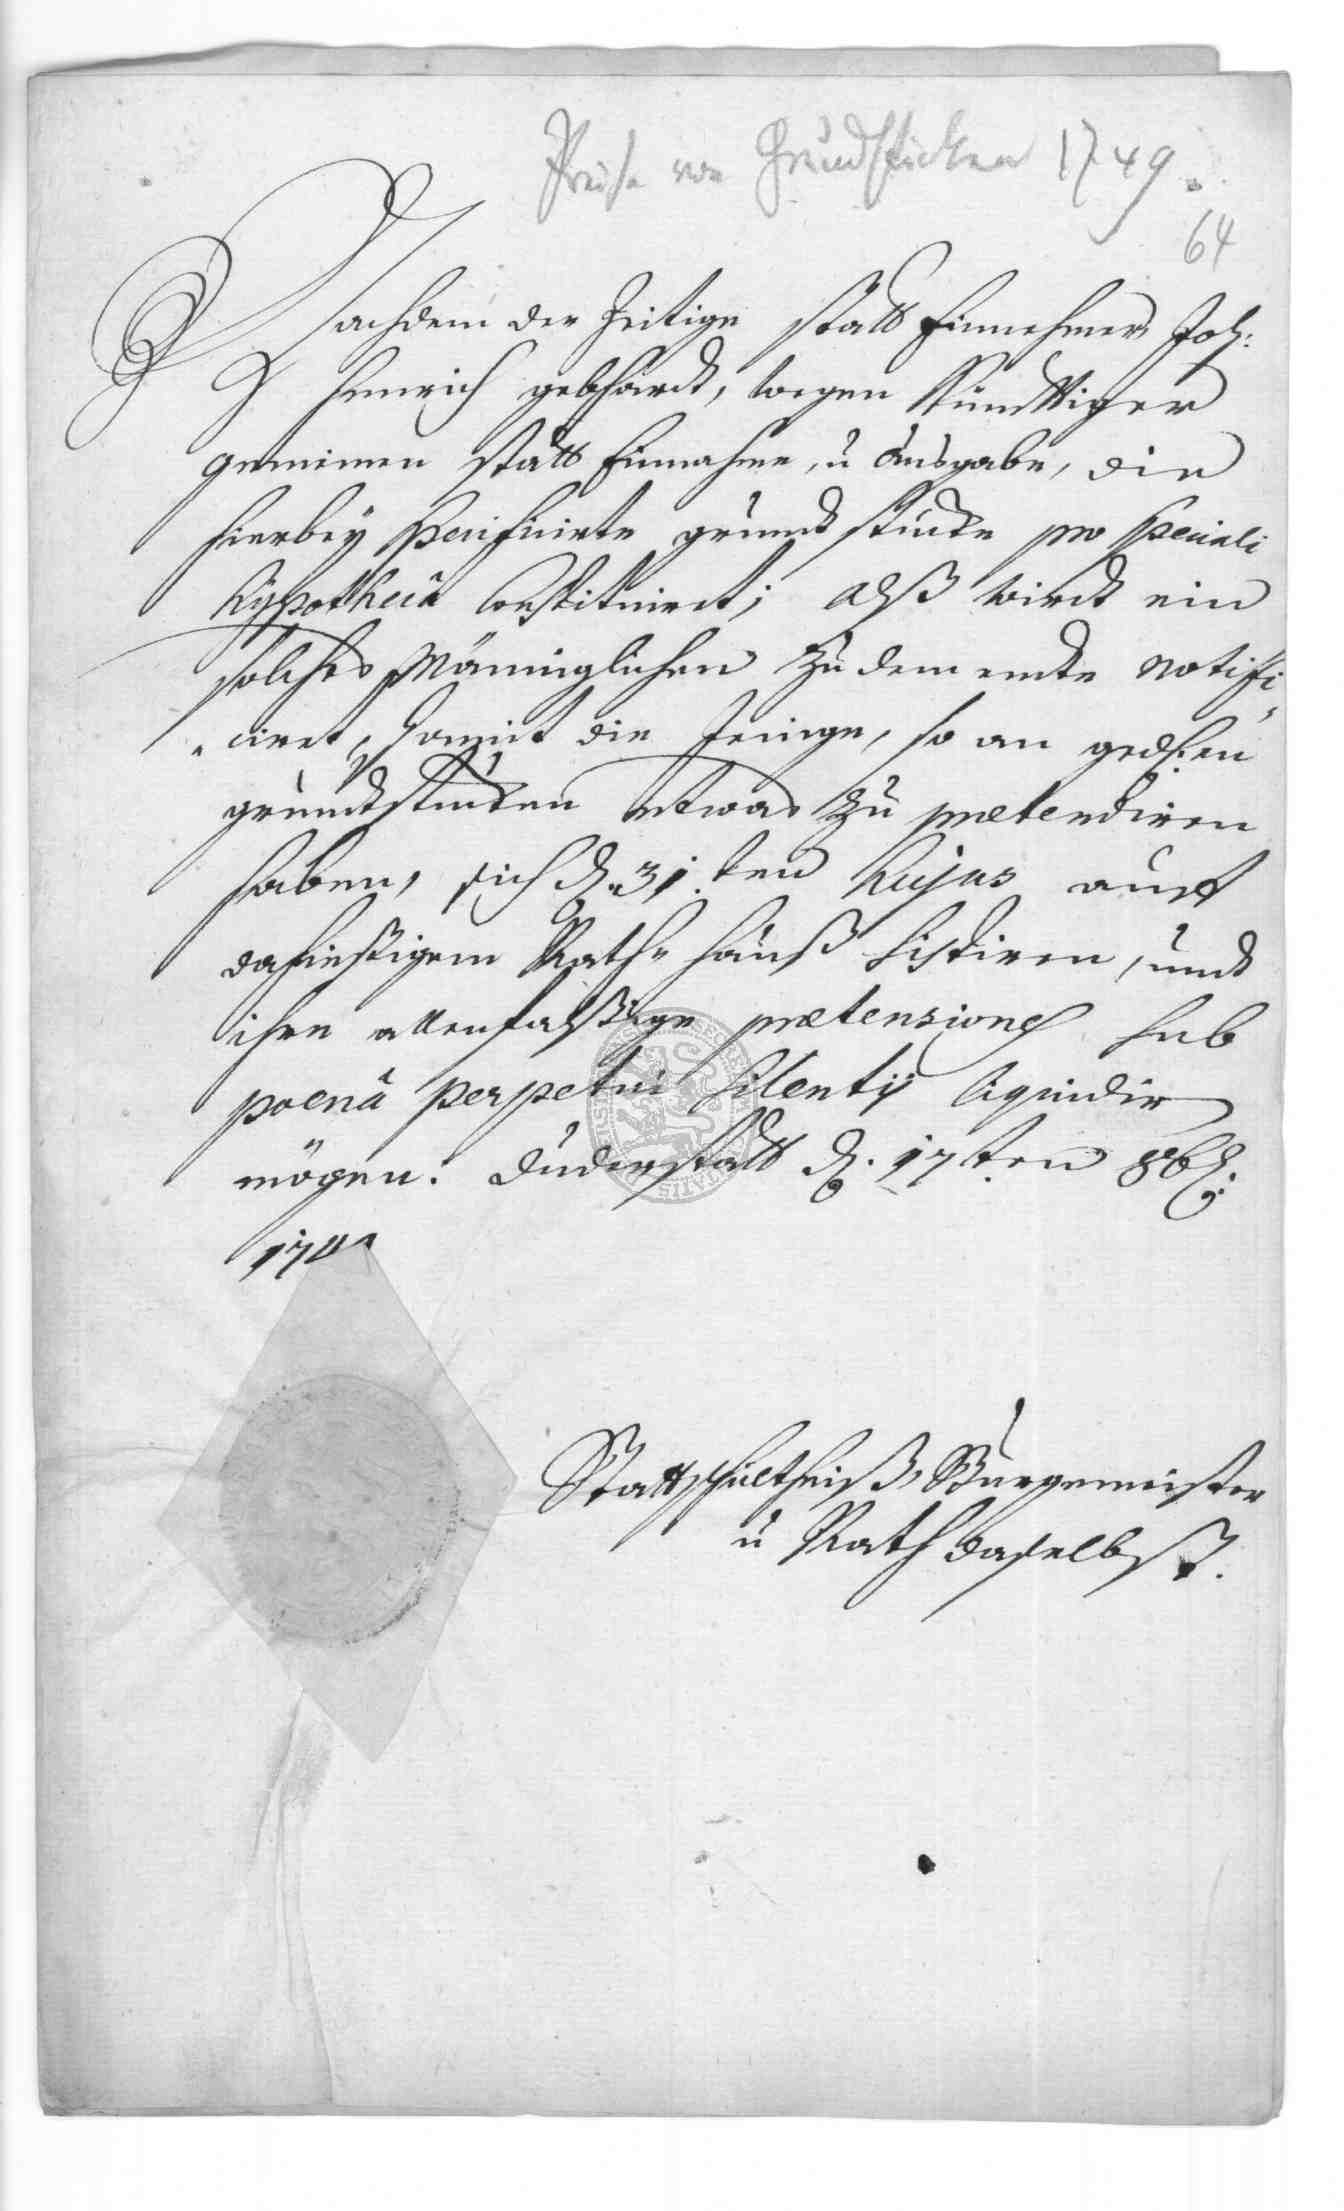 Preise von Grundstücken 1749.
64
Nachdem der Zeitige statt Einnehmer Joh:
Henrich gebhardt, wegen künfftiger
gemeinen statt Einnahme, u ausgabe, die
hierbey specificirte grundstücke pro speciali
hypothecâ constituiret; Alß wirdt ein
solches Männiglichen zu dem ende notifi„
„ciret, damit die Jenige, so an gedchen
grundtstücken etwas zu prætendiren
haben, sich d. 31.ten hujus auff
dahiesigem Rath„hauß sistiren, undt
ihre allenfalßige prætensiones sub
poenâ perpetui silentij liquidiren
mögen. Duderstatt d. 17ten 8bris
Stattschultheiß, Bürgemeister
u Rath daselbst.